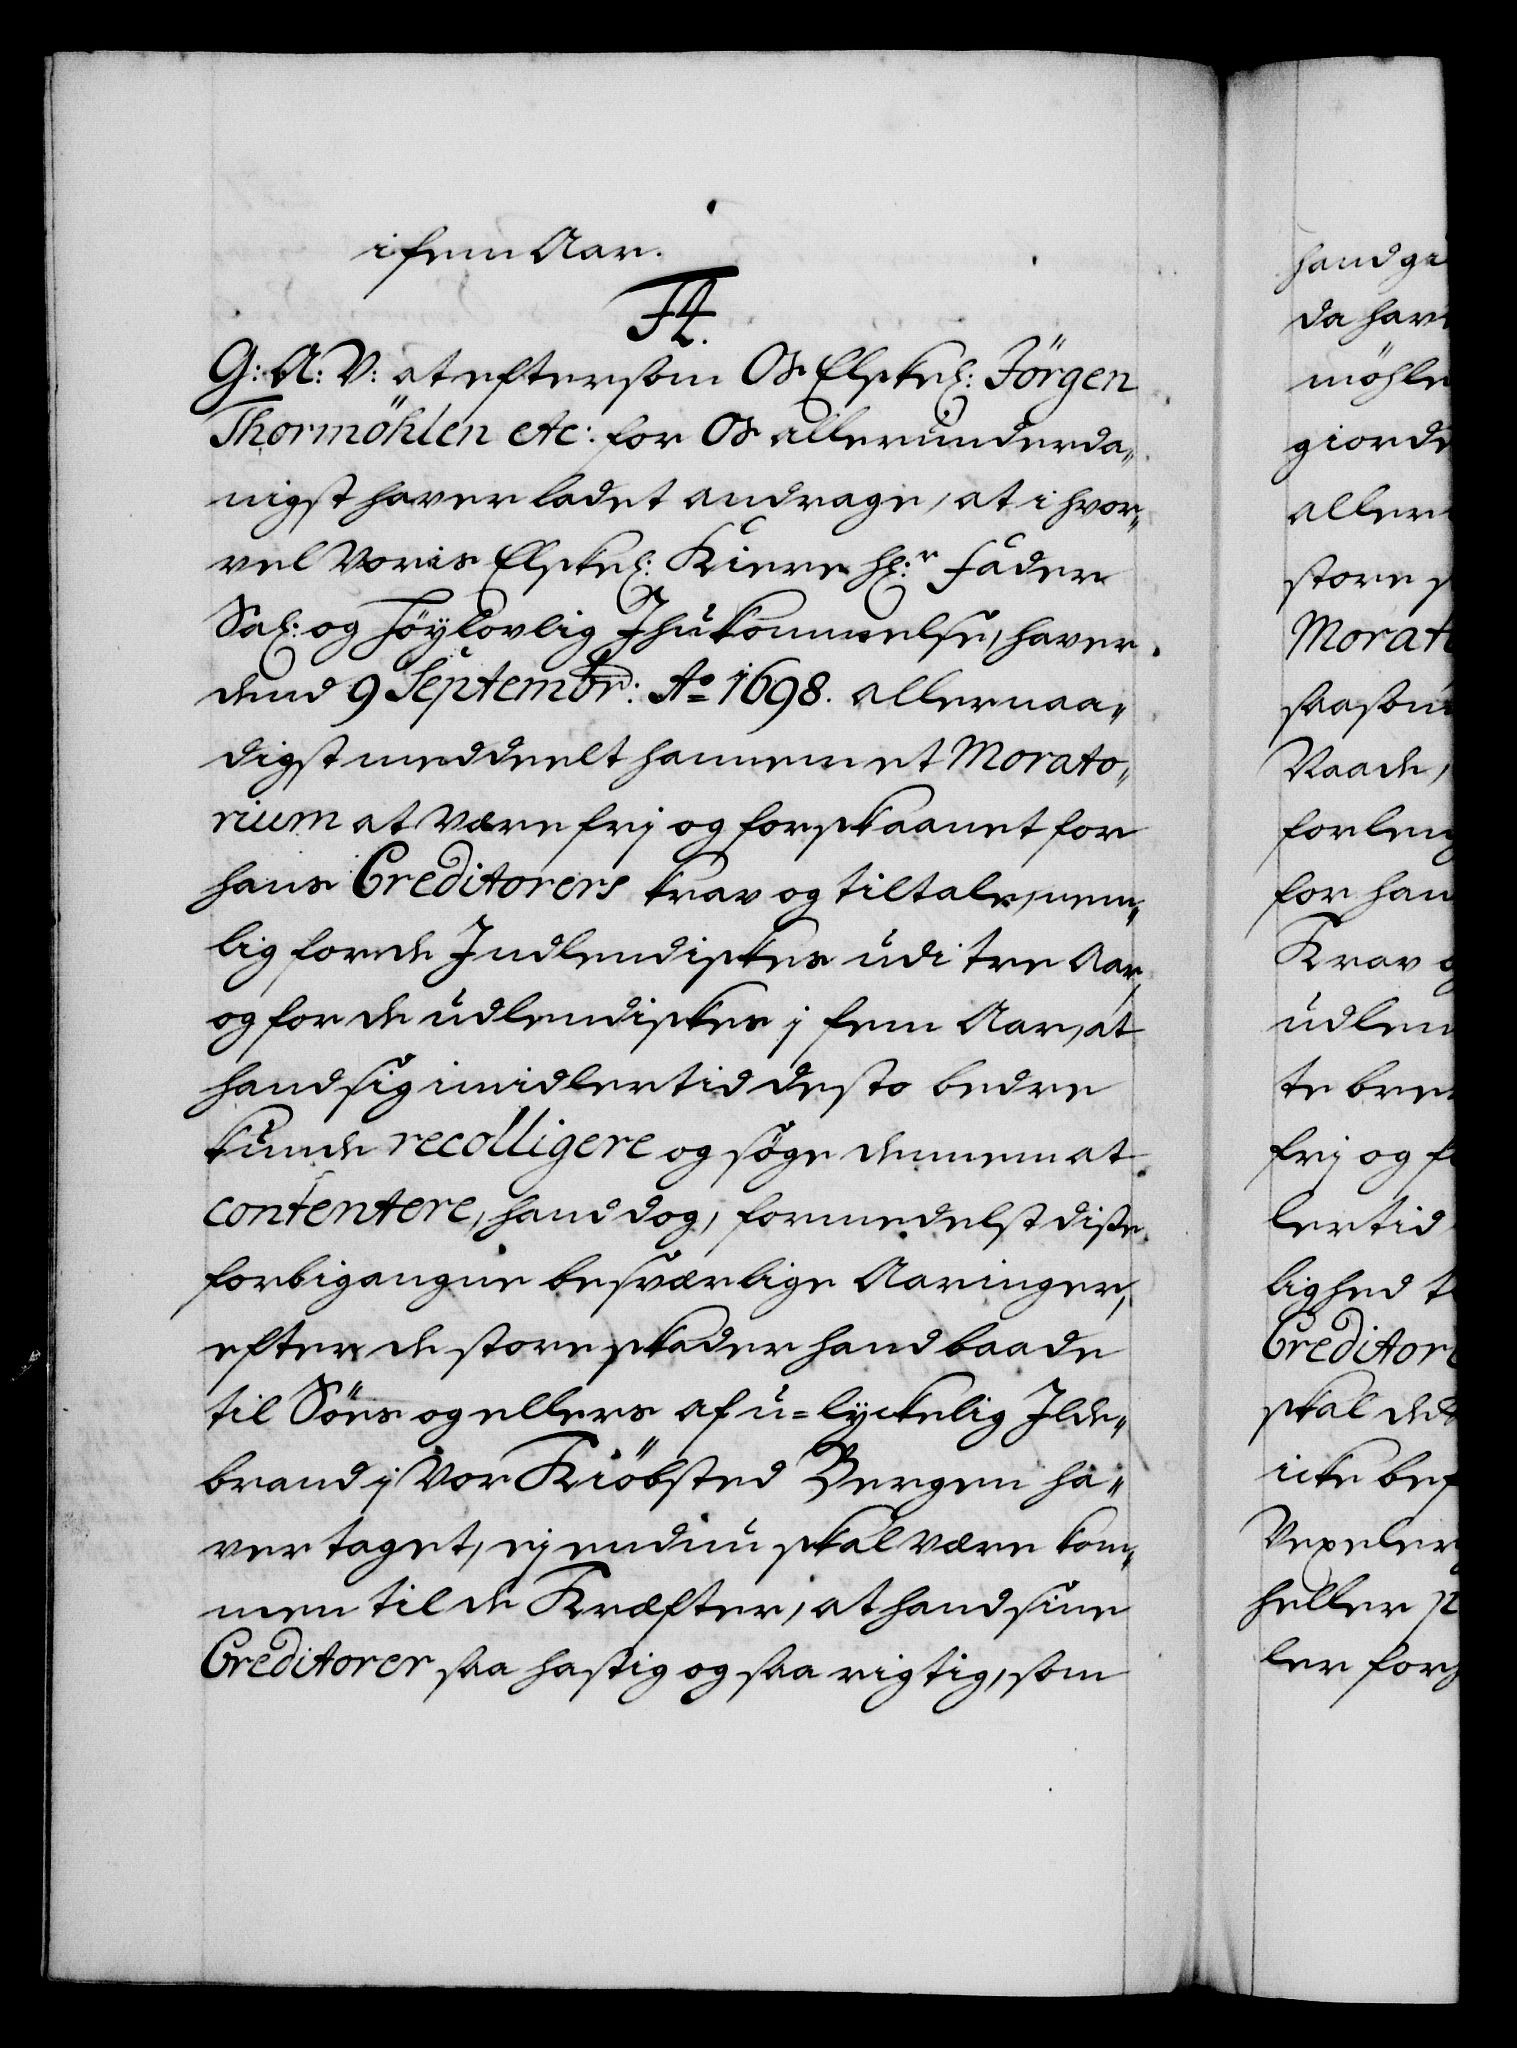 i fem Aar.
F4.
G: A: V: at eftersom Os Elskel: Jörgen
Thormöhlen etc: for Os allerunderda„
nigst haver ladet andrage, at i hvor„
vel Voris Elskel: Kiere Hl:r Fader
Sal: og Höylovlig Ihukommelse, haver
dend 9 Septembr: Ao 1698. allernaa„
digst meddeelt hannem et Morato„
rium at være frj og forskaanet for
hans Creditorers krav og tiltale, nem„
lig for de Indlendiskes udi tre Aar,
og for de udlendiskes j fem Aar, at
hand sig imidlertid desto bedre
kunde recolligere og søge dennem at
contentere, hand dog, formedelst disse
forbigangne besværlige Aaringer,
efter de store skader hand baade
til Söes og ellers af u=lyckelig Ilde„
brand j Vor Kiöbsted Bergen ha„
ver taget, ej endnu skal være kom„
men til de Kræfter, at hand sine
Creditorer saa hastig og saa rigtig, som
hand gi
da hav
möhle
giorde
aller
store s
Morato
saasom
Naade,
forleng
for han
Krav o
udlen
te bre
frj og f
lertid
lighed t
Creditor
skal de
icke bef
Vexeler
heller p
ler forh